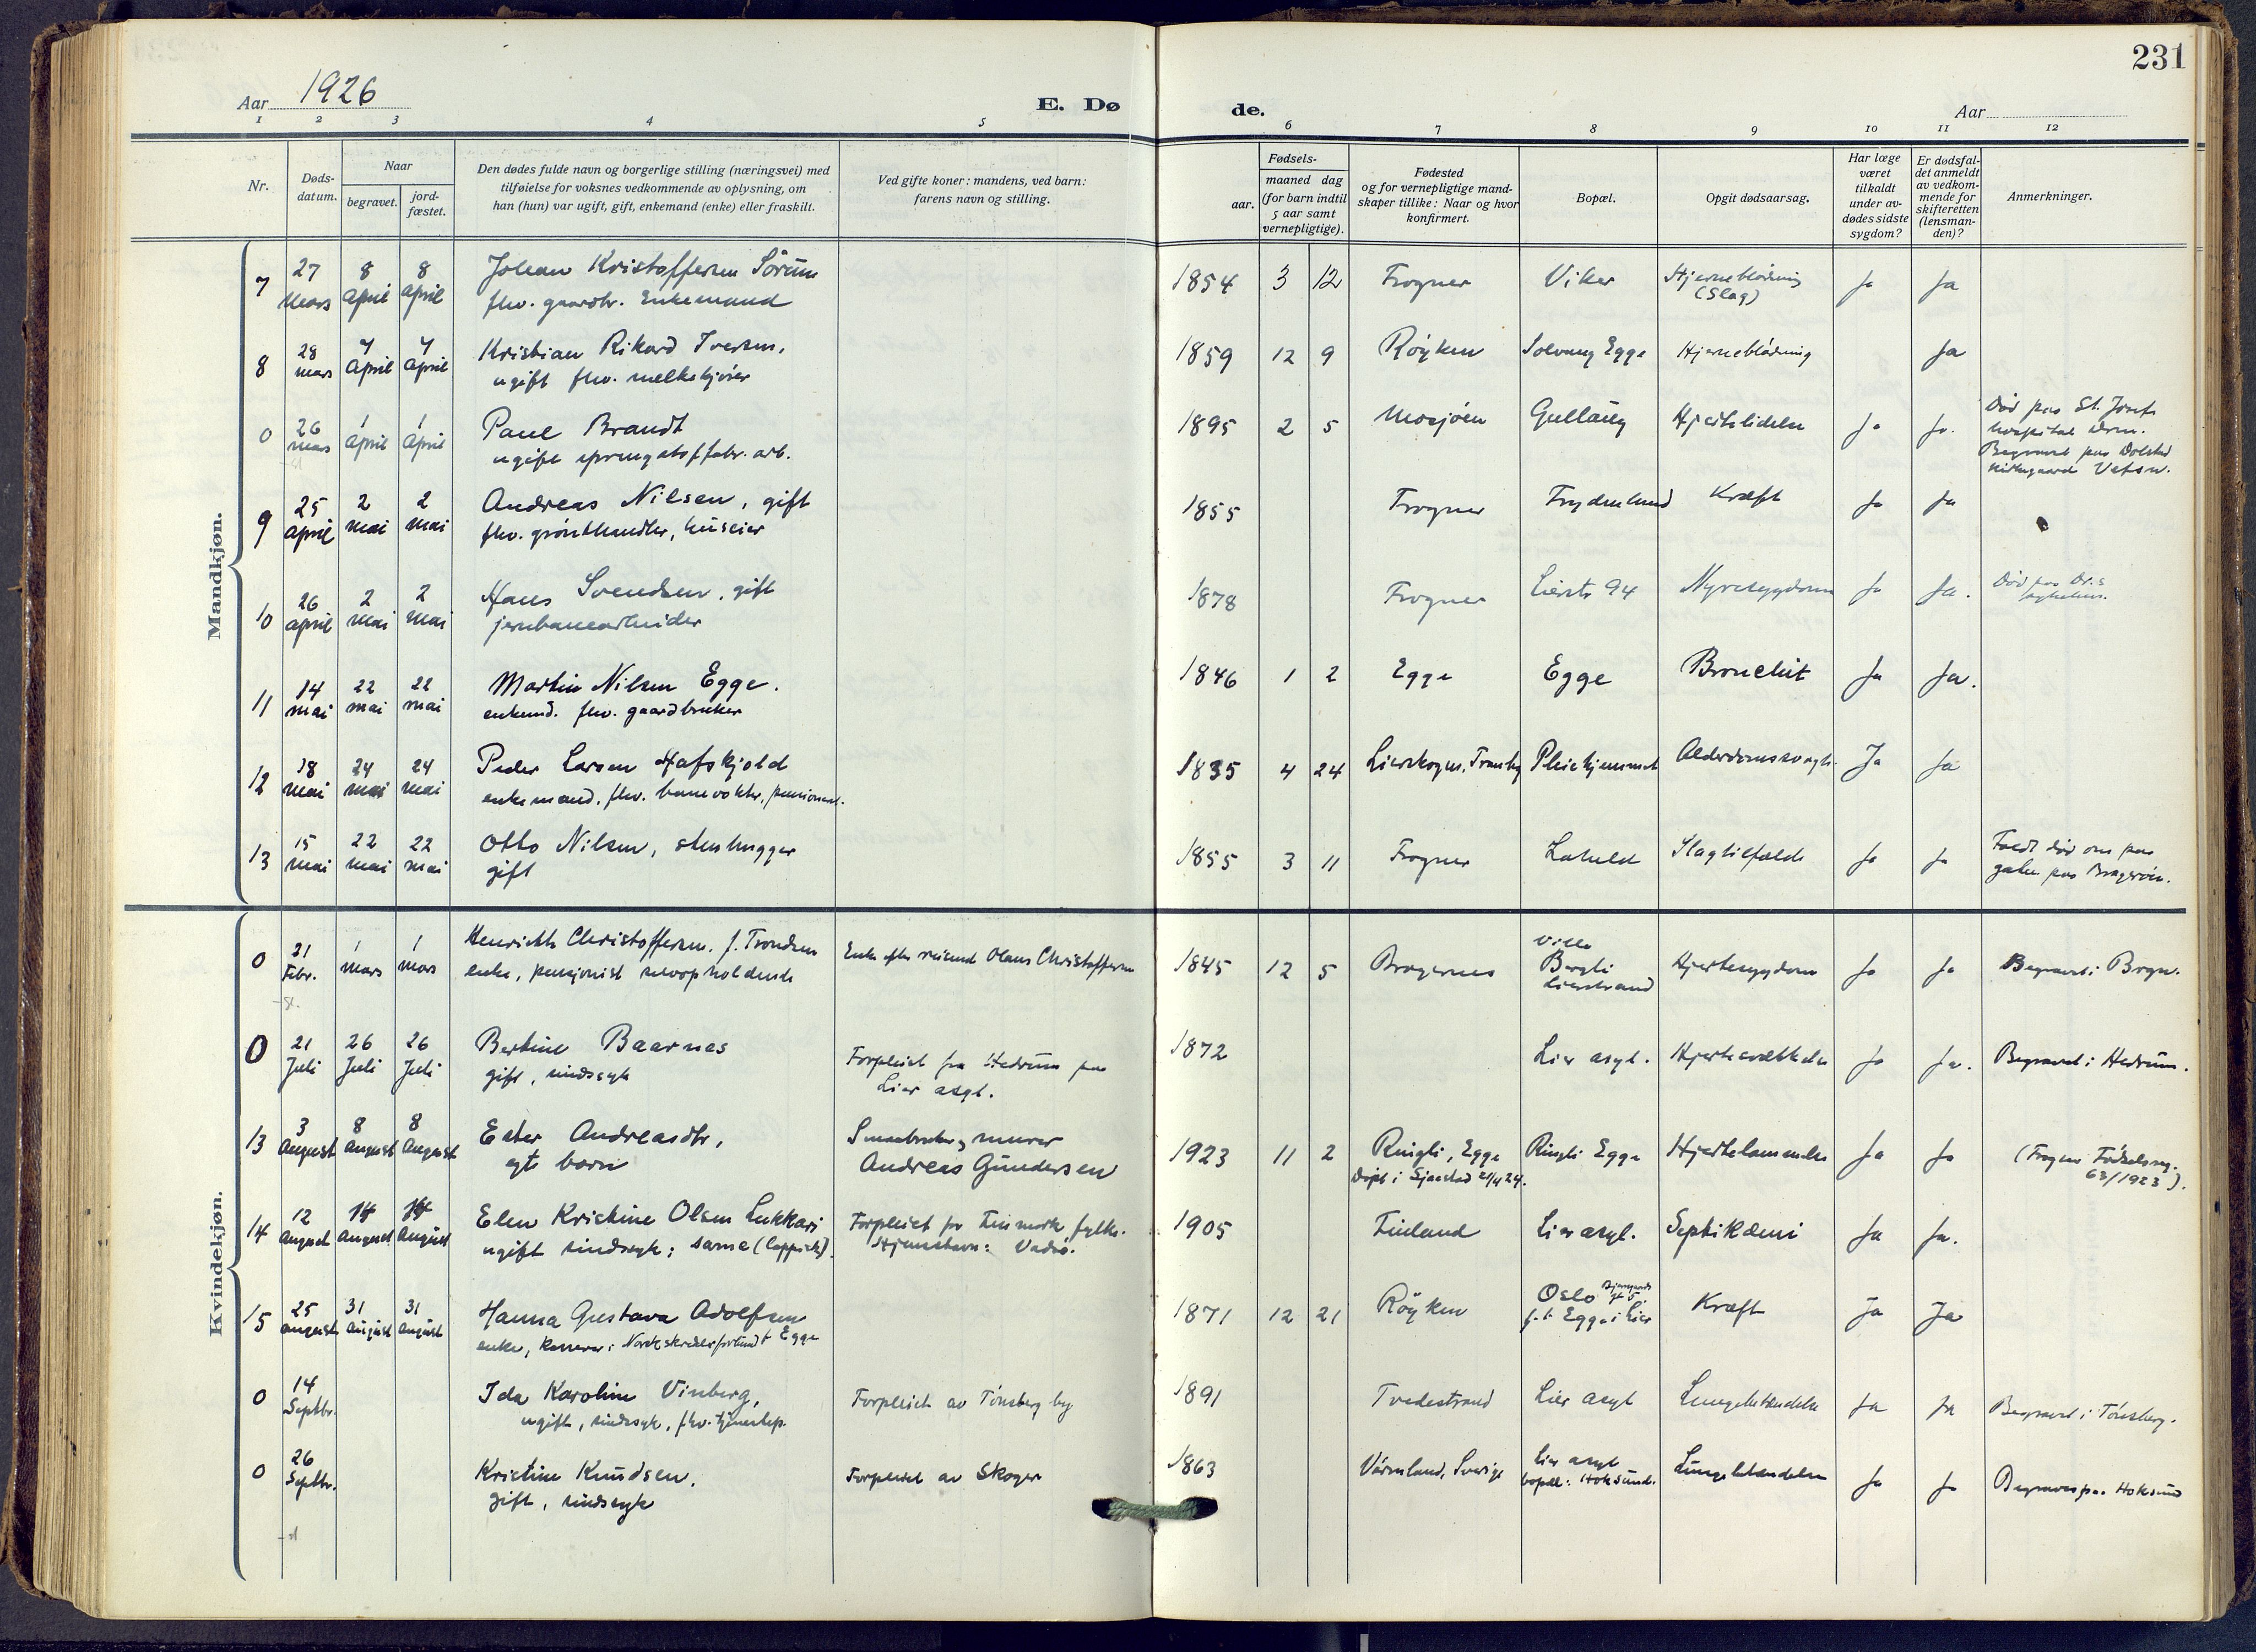 231
Aar 1926
E. Dø
de.
Aar
1 2 3 4 5 6 7 8 9 10 11 12
Nr.
Døds-
datum.
Naar
begravet.
jord-
fæstet.
Den dødes fulde navn og borgerlige stilling (næringsvei) med
tilføielse for voksnes vedkommende av oplysning, om
han (hun) var ugift, gift, enkemand (enke) eller fraskilt.
Ved gifte koner: mandens, ved barn:
farens navn og stilling.
Fødsels-
aar.
maaned dag
(for barn indtil
5 aar samt
vernepligtige).
Fødested
og for vernepligtige mand-
skaper tillike: Naar og hvor
konfirmert.
Bopæl.
Opgit dødsaarsag.
Har læge
været
tilkaldt
under av-
dødes sidste
sygdom?
Er dødsfal-
det anmeldt
av vedkom-
mende for
skifteretten
(lensman-
den)?
Anmerkninger.
Mandkjøn.
7 27 8 8 Johan Kristoffersen Sørum 1854 3 12 Frogner Viker Hjerneblødning Ja Ja
Mars april april fhv. gaardbr. Enkemand (Slag)
8 28 7 7 Kristian Rikard Iversen, 1859 12 9 Røyken Solvang Egge Hjerneblødning Ja
mars April April ugift fhv. melkekjører
0 26 1 1 Paul Brandt 1895 2 5 Mosjøen Gullaug Hjertelidelse Ja Ja.
mars april april ugift sprengstoffabr. arb.
Død paa St. Josefs
hospital Drm.
Begravet paa Dolstad
kirkegaard Vefsn.
9 25 2 2 Andreas Nilsen, gift 1855 Frogner Frydenlund Kræft Ja Ja
april mai mai fhv. grønthandler, huseier
10 26 2 2 Hans Svendsen, gift 1878 Frogner Lierstr 94 Nyresygdom Ja Ja. Død paa Dr.s
april mai mai jernbanearbeider sykehus.
11 14 22 22 Martin Nilsen Egge. 1846 1 2 Egge Egge Bronchit Ja Ja.
mai mai mai enkemd. fhv. gaardbruker
12 18 24 24 Peder Larsen Hafskjold 1835 4 24 Lierskogen, Tranby Pleiehjemmet Alderdomssvagh. Ja Ja
mai mai mai enkemand, fhv. banevokter, pensionist.
13 15 22 22 Otto Nilsen, stenhugger 1855 3 11 Frogner Laheld Slagtilfælde Ja Ja Faldt død om paa
mai mai mai gift gaten paa Bragerøen.
Kvindekjøn.
0 21 1 1 Henriette Christoffersen. f. Trondsen Enke efter reisende Olaus Christoffersen 1845 12 5 Bragernes Villa Hjertesygdom Ja Ja Begravet i Bragn.
Febr. mars mars enke, pensjonist selvopholdende Bergli
Lierstrand
0 21 26 26 Bertine Baarnes Forpleiet fra Hedrum paa 1872 Lier asyl. Hjertesvækkelse Ja Ja. Begravet i Hedrum.
Juli Juli Juli gift, sindssyk Lier asyl.
13 3 8 8 Ester Andreasdtr, Smaabruker og murer 1923 11 2 Ringli, Egge Ringli Egge Hjertelammelse Ja Ja (Frogner Fødselsreg.
August August August egte barn Andreas Gundersen Døpt i Sjaastad 21/4 24. 63/1923).
14 12 14 14 Elen Kristine Olsen Lukkari Forpleiet for Finmark fylke. 1905 Finland Lier asyl. Septikæmi Ja Ja.
August August August ugift sindssyk; same (lappisk). Hjemstavn: Vadsø.
15 25 31 31 Hanna Gustava Adolfsen 1871 12 21 Røyken Oslo Kræft Ja Ja
august August August enke, kasserer i Norsk skrædderforbund f. Egge f.t. Egge i Lier
0 14 Ida Karoline Vinberg, Forpleiet av Tønsberg by 1891 Tvedestrand Lier asyl Lungebetændelse Ja Ja Begravet i Tønsberg.
Septbr. ugift, sindssyk, fhv. tjenestep.
0 26 Kristine Knudsen. Forpleiet av Skoger 1863 Värmland, Sverige Lier asyl Lungebetændelse Ja Ja Begraves paa Hoksund
Septbr. gift, sindssyk bopæl: Hoksund.